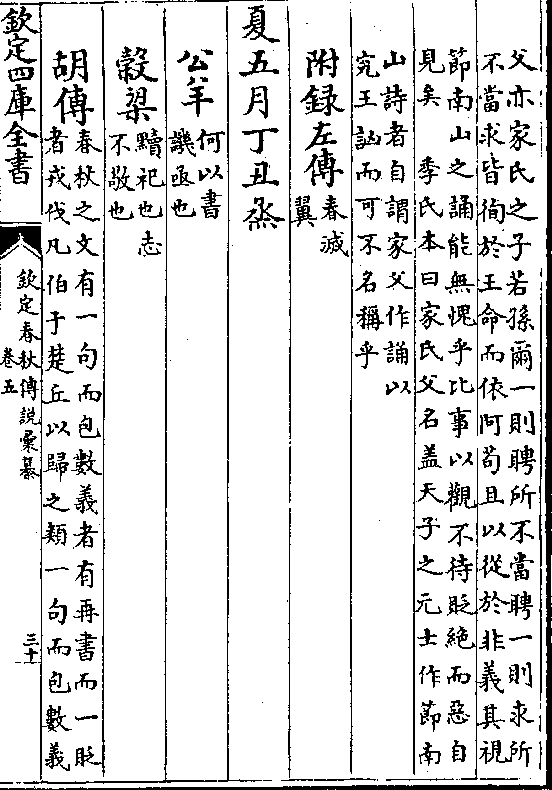 父亦家氏之子若孫爾一則聘所不當聘一則求所
不當求皆徇於王命而依阿苟且以從於非義其視
節南山之誦能無愧乎比事以觀不待貶絶而惡自
見矣　季氏本曰家氏父名盖天子之元士作節南
山詩者自謂家父作誦以
究王訩而可不名稱乎
附録左傳春滅
翼
夏五月丁丑烝
公羊何以書
譏亟也
穀梁黷祀也志
不敬也
胡傳春秋之文有一句而包數義者有再書而一貶
者戎伐凡伯于楚丘以歸之類一句而包數義
欽定四庫全書
欽定春秋傳說彚纂
卷五
三十